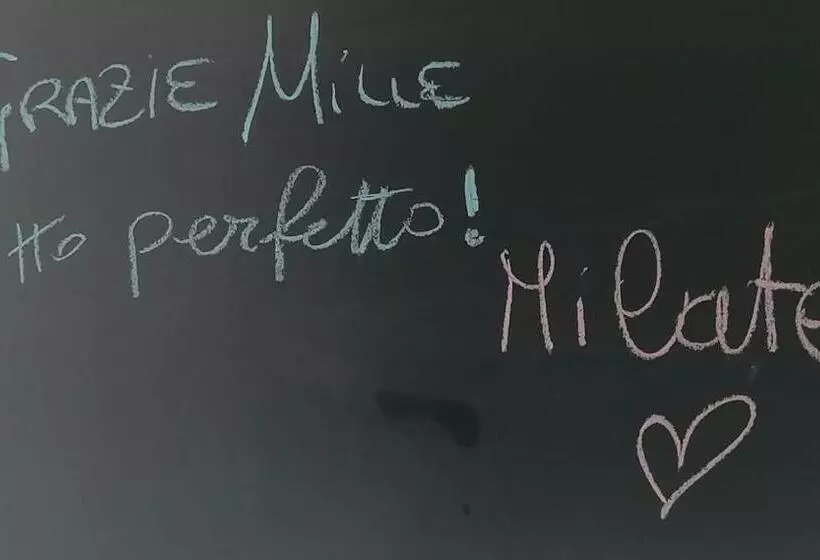 GRAZIE MILLE
tto perfetto!
Milate